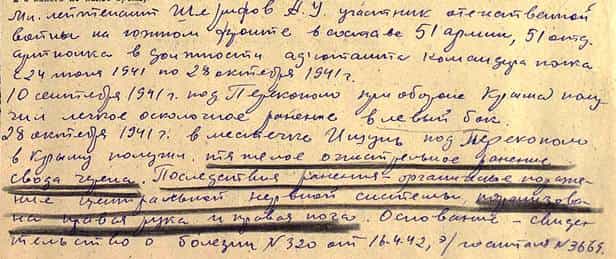 Мл. лейтенант Шерифов А.У. участник отечественной
войны на южном фронте в составе 51 армии, 51 отд.
артполка в должности адъютанта командира полка
с 24 июля 1941 по 28 октября 1941 г.
10 сентября 1941 г. под Перекопом при обороне Крыма полу-
чил легкое осколочное ранение в левый бок.
28 октября 1941 г. в местечке Ишунь под Перекопом
в Крыму получил тяжелое огнестрельное ранение
свода черепа. Последствия ранения - органическое пораже-
ние центральной нервной системы, парализова-
на правая рука и правая нога. Основание - свиде-
тельство о болезни N 320 от 16.4.42, э/госпиталя N 3669.